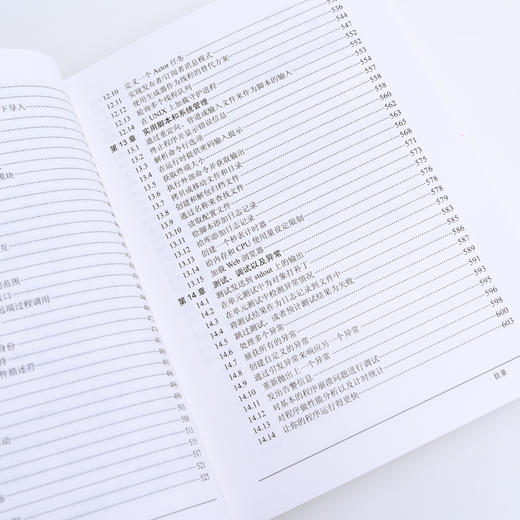 下导入
模块
互
范围
接口
远端过程调用
身份
持
件描述符
动
515
517
525
12.10 定义一个 Actor 任务
12.11 实现发布者/订阅者消息模式
12.12 使用生成器作为线程的替代方案
12.13 轮询多个线程队列
12.14 在 UNIX 上加载守护进程
第 13 章 实用脚本和系统管理
13.1 通过重定向、管道或输入文件来作为脚本的输入
13.2 终止程序并显示错误信息
13.3 解析命令行选项
13.4 在运行时提供密码输入提示
13.5 获取终端大小
13.6 执行外部命令并获取输出
13.7 拷贝或移动文件和目录
13.8 创建和解包归档文件
13.9 通过名称来查找文件
13.10 读取配置文件
13.11 给脚本添加日志记录
13.12 给库添加日志记录
13.13 创建一个秒表计时器
13.14 给内存和 CPU 使用量设定限制
13.15 加载 Web 浏览器
第 14 章 测试、调试以及异常
14.1 测试发送到 stdout 上的输出
14.2 在单元测试中为对象打补丁
14.3 在单元测试中检测异常情况
14.4 将测试结果作为日志记录到文件中
14.5 跳过测试，或者预计测试结果为失败
14.6 处理多个异常
14.7 捕获所有的异常
14.8 创建自定义的异常
14.9 通过引发异常来响应另一个异常
14.10 重新抛出上一个异常
14.11 发出告警信息
14.12 对基本的程序崩溃问题进行调试
14.13 对程序做性能分析以及计时统计
14.14 让你的程序运行得更快
536
544
547
552
553
554
557
558
558
561
562
563
565
568
571
573
575
578
579
583
585
587
589
591
593
595
598
600
603
目录